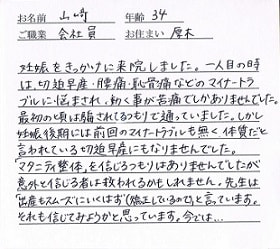 お名前 山﨑 年齢 34
ご職業 会社員 お住まい 厚木
妊娠をきっかけに来院しました。一人目の時
は、切迫早産・腰痛・恥骨痛などのマイナートラ
ブルに悩まされ、動く事が苦痛でしかありませんでした。
最初の頃は騙されてるつもりで通っていました。しかし
妊娠後期には前回のマイナートラブルも無く体質だと
言われている切迫早産にもなりませんでした。
「マタニティ整体」を信じるつもりはありませんでしたが
意外と信じる者は救われるかもしれません。先生は
「出産もスムーズにいくはず（矯正しているので）」と言っています。
それも信じてみようかと思っています。今では…